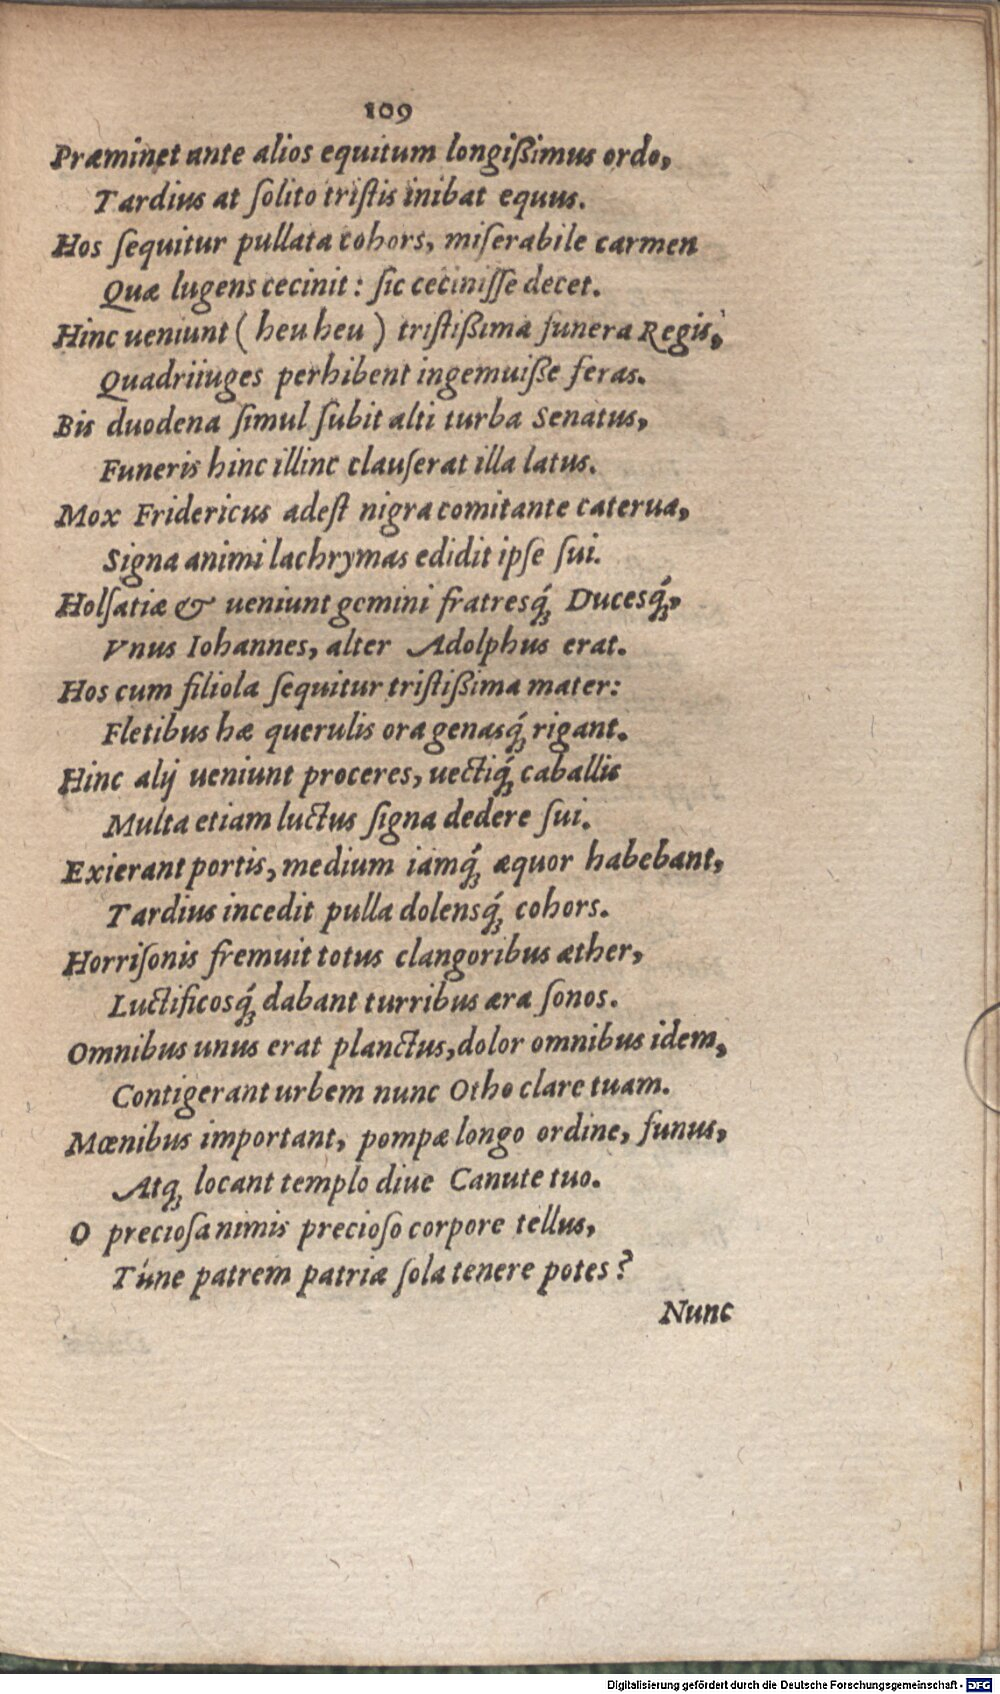 109
Præminet ante alios equitum longißimus ordo,
Tardius at ſolito triſtis inibat equus.
Hos ſequitur pullata cohors, miſerabile carmen
Quæ lugens cecinit: ſic ceciniſſe decet.
Hinc ueniunt (heu heu) triſtißima funera Regis,
Quadriiuges perhibent ingemuiße feras.
Bis duodena ſimul ſubit alti turba Senatus,
Funeris hinc illinc clauſerat illa latus.
Mox Fridericus adeſt nigra comitante caterua,
Signa animi lachrymas edidit ipſe ſui.
Holſatiæ & ueniunt gemini fratresq́; Ducesq́;,
Vnus Iohannes, alter Adolphus erat.
Hos cum filiola ſequitur triſtißima mater:
Fletibus hæ querulis ora genasq́; rigant.
Hinc alij ueniunt proceres, uectiq́; caballis
Multa etiam luctus ſigna dedere ſui.
Exierant portis, medium iamq́; æquor habebant,
Tardius incedit pulla dolensq́; cohors.
Horriſonis fremuit totus clangoribus æther,
Luctificosq́; dabant turribus æra ſonos.
Omnibus unus erat planctus, dolor omnibus idem,
Contigerant urbem nunc Otho clare tuam.
Mœnibus important, pompæ longo ordine, funus,
Atq; locant templo diue Canute tuo.
O precioſa nimis precioſo corpore tellus,
Túne patrem patriæ ſola tenere potes?
Nunc
Digitalisierung gefördert durch die Deutsche Forschungsgemeinschaft - DFG